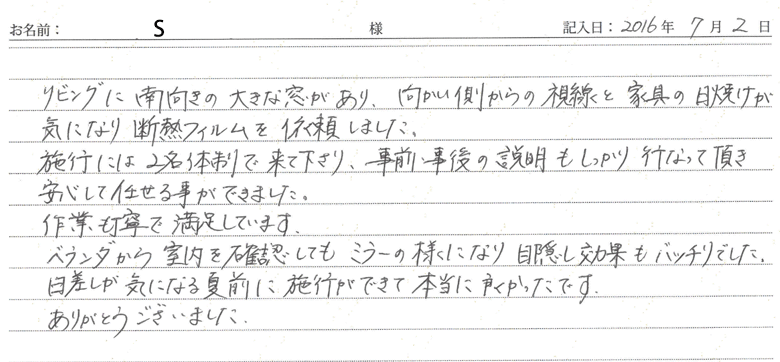 お名前： S 様 記入日：2016年 7月 2日
リビングに南向きの大きな窓があり、向かい側からの視線と家具の日焼けが
気になり断熱フィルムを依頼しました。
施行には2名体制で来て下さり、事前事後の説明もしっかり行なって頂き
安心して任せる事ができました。
作業も丁寧で満足しています。
ベランダから室内を確認してもミラーの様になり目隠し効果もバッチリでした。
日差しが気になる夏前に施行ができて本当に良かったです。
ありがとうございました。